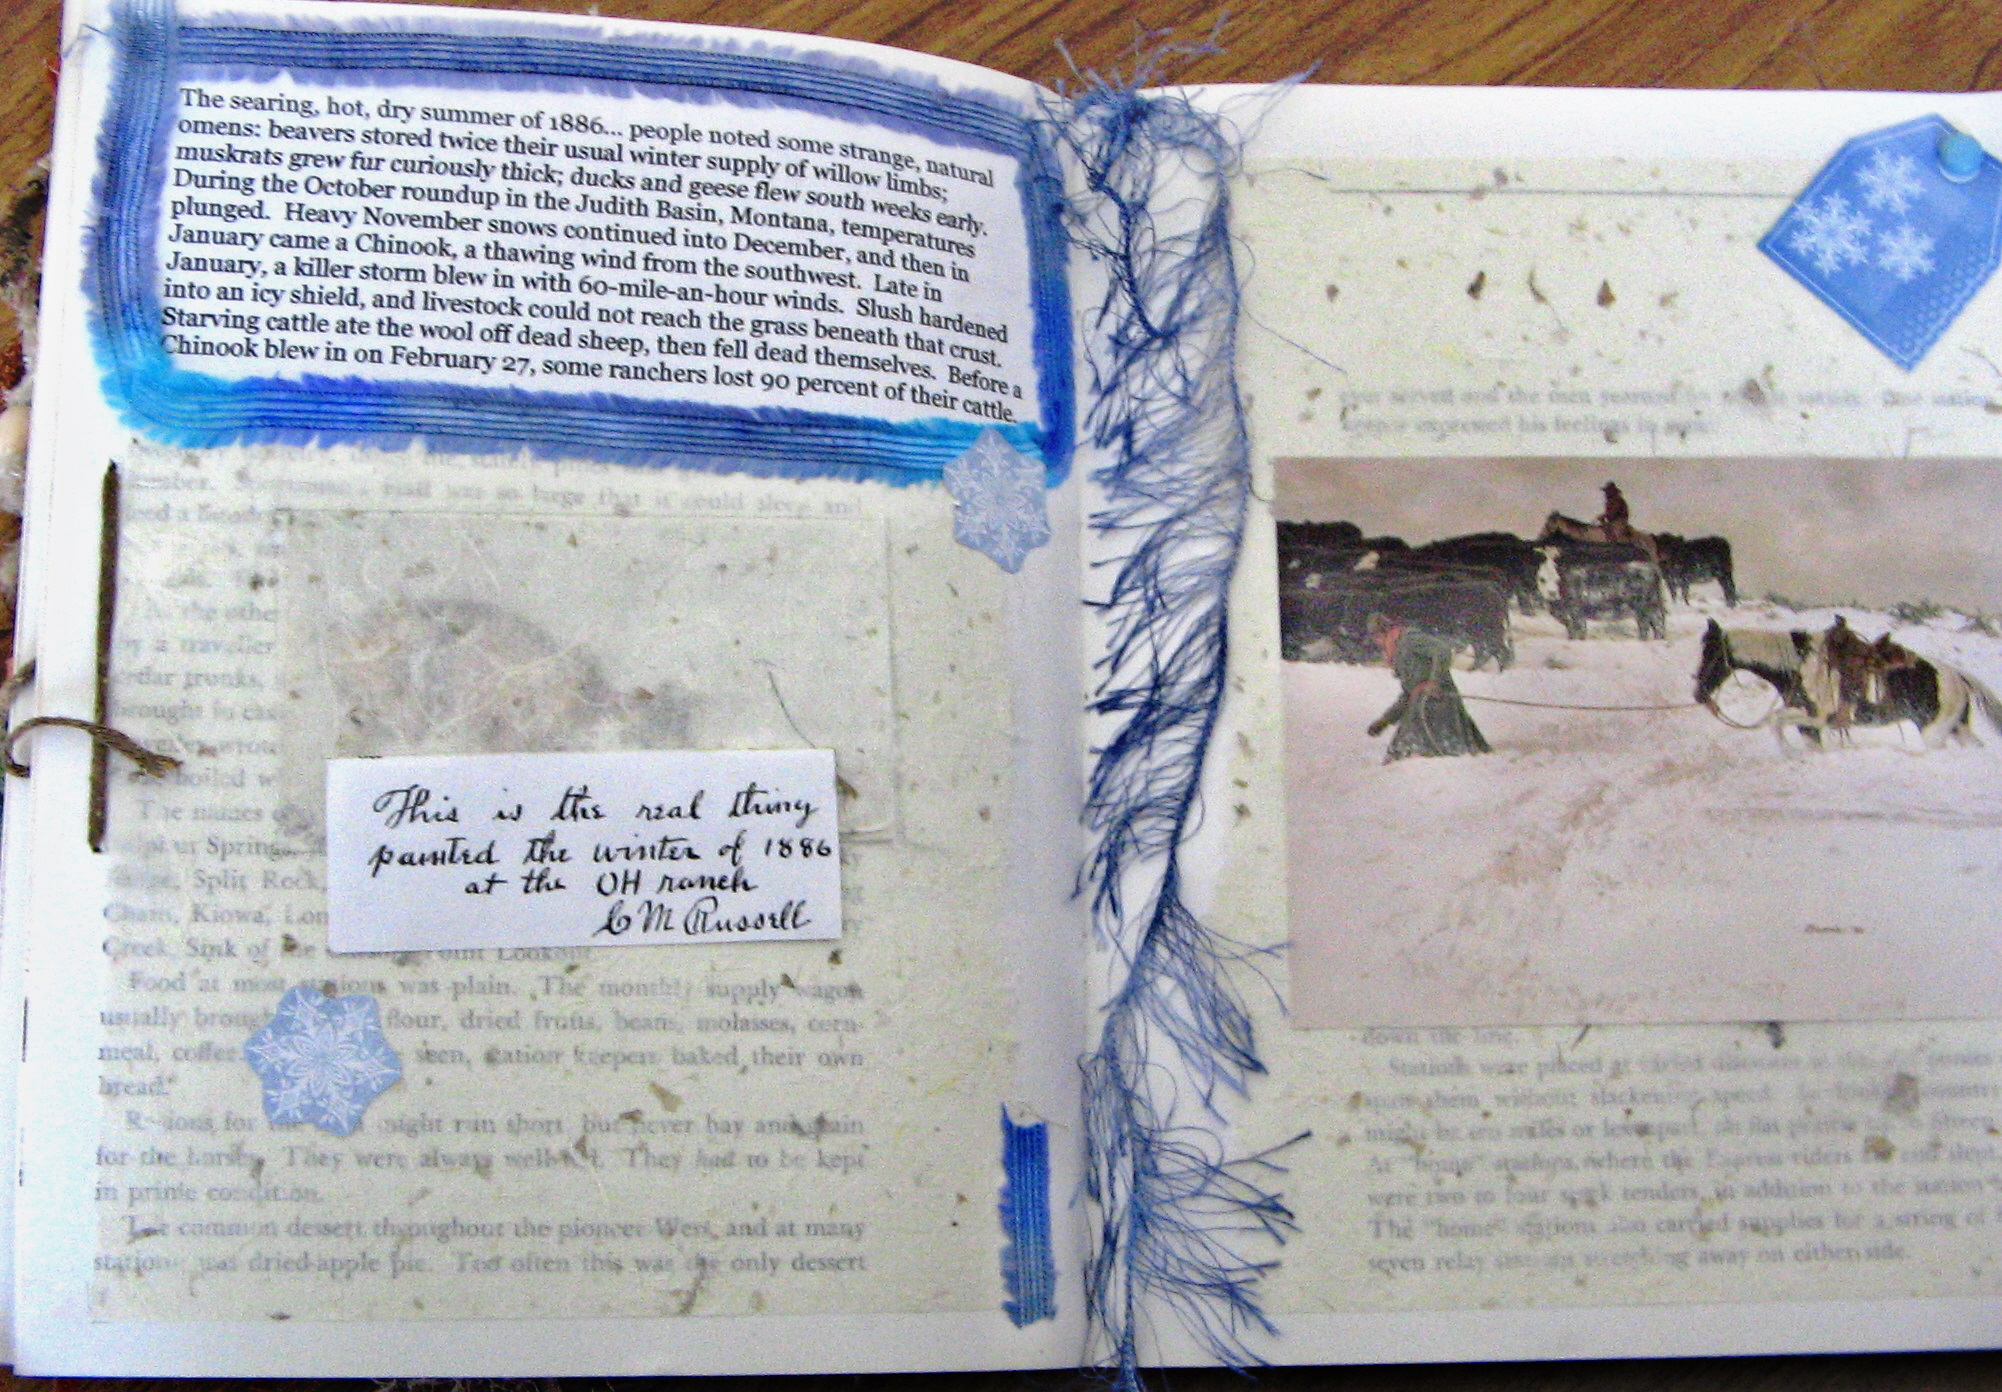 The searing, hot, dry summer of 1886... people noted some strange, natural
omens: beavers stored twice their usual winter supply of willow limbs;
muskrats grew fur curiously thick; ducks and geese flew south weeks early.
During the October roundup in the Judith Basin, Montana, temperatures
plunged. Heavy November snows continued into December, and then in
January came a Chinook, a thawing wind from the southwest. Late in
January, a killer storm blew in with 60-mile-an-hour winds. Slush hardened
into an icy shield, and livestock could not reach the grass beneath that crust.
Starving cattle ate the wool off dead sheep, then fell dead themselves. Before a
Chinook blew in on February 27, some ranchers lost 90 percent of their cattle.
was so large that it could sleep and
the othe
by a traveller
trunks,
boiled w
The names
Springs,
Split Rock,
Kiowa, Lon
Creek, Sink of the Lookout
This is the real thing
painted the winter of 1886
at the OH ranch
C M Russell
Food at most stations was plain. The monthly supply wagon
usually brought flour, dried fruits, beans, molasses, corn-
meal, coffee. seen, station keepers baked their own
bread."
for the might run short, but never hay and grain
for the horses. They were always well-fed. They had to be kept
in prime condition.
The common dessert throughout the pioneer West, and at many
stations was dried-apple pie. Too often this was the only dessert
ever served and the men yearned for
keeper expressed his feelings in
down the line.
Stations were placed at varied distances
them without slackening speed.
might be ten miles or less apart,
At "home" stations, where the Express riders and slept,
were two to four stock tenders, in addition to the station
The "home" stations also carried supplies for a string of
seven relay stations stretching away on either side.